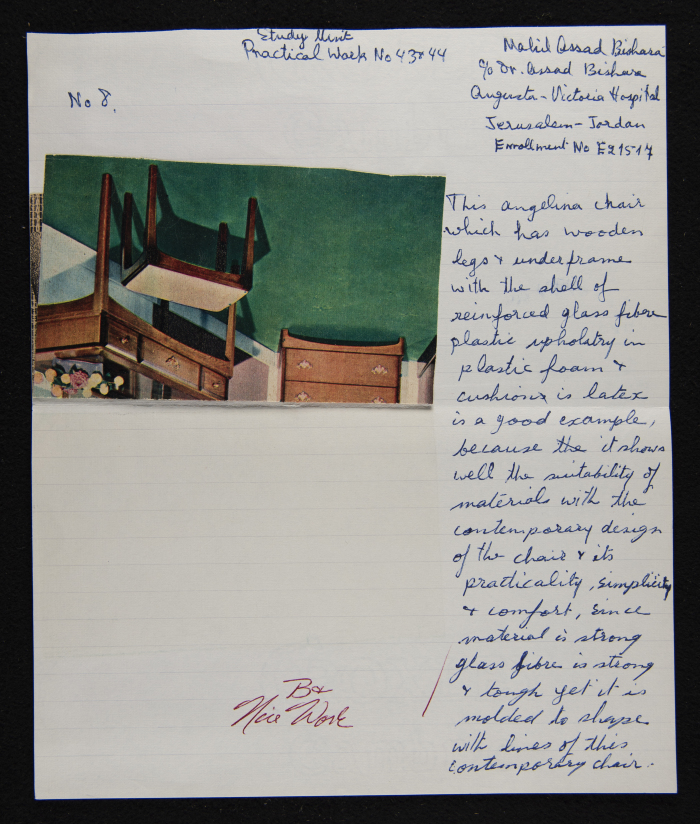 Study Unit
Practical Work No 43 & 44
Assad Bishara
c/o Dr. Assad Bishara
Augusta-Victoria Hospital
Jerusalem-Jordan
Enrollment No E21517
No 8.
This angelina chair
which has wooden
legs & underframe
with the shell of
reinforced glass fibere
plastic upholtry in
plastic foam &
cushions is latex
is a good example,
because the it shows
well the suitability of
materials with the
contemporary design
of the chair & its
practicality, simplicity
& comfort, since
material is strong
glass fibre is strong
& tough yet it is
molded to shape
with lines of this
contemporary chair.
Nice Work